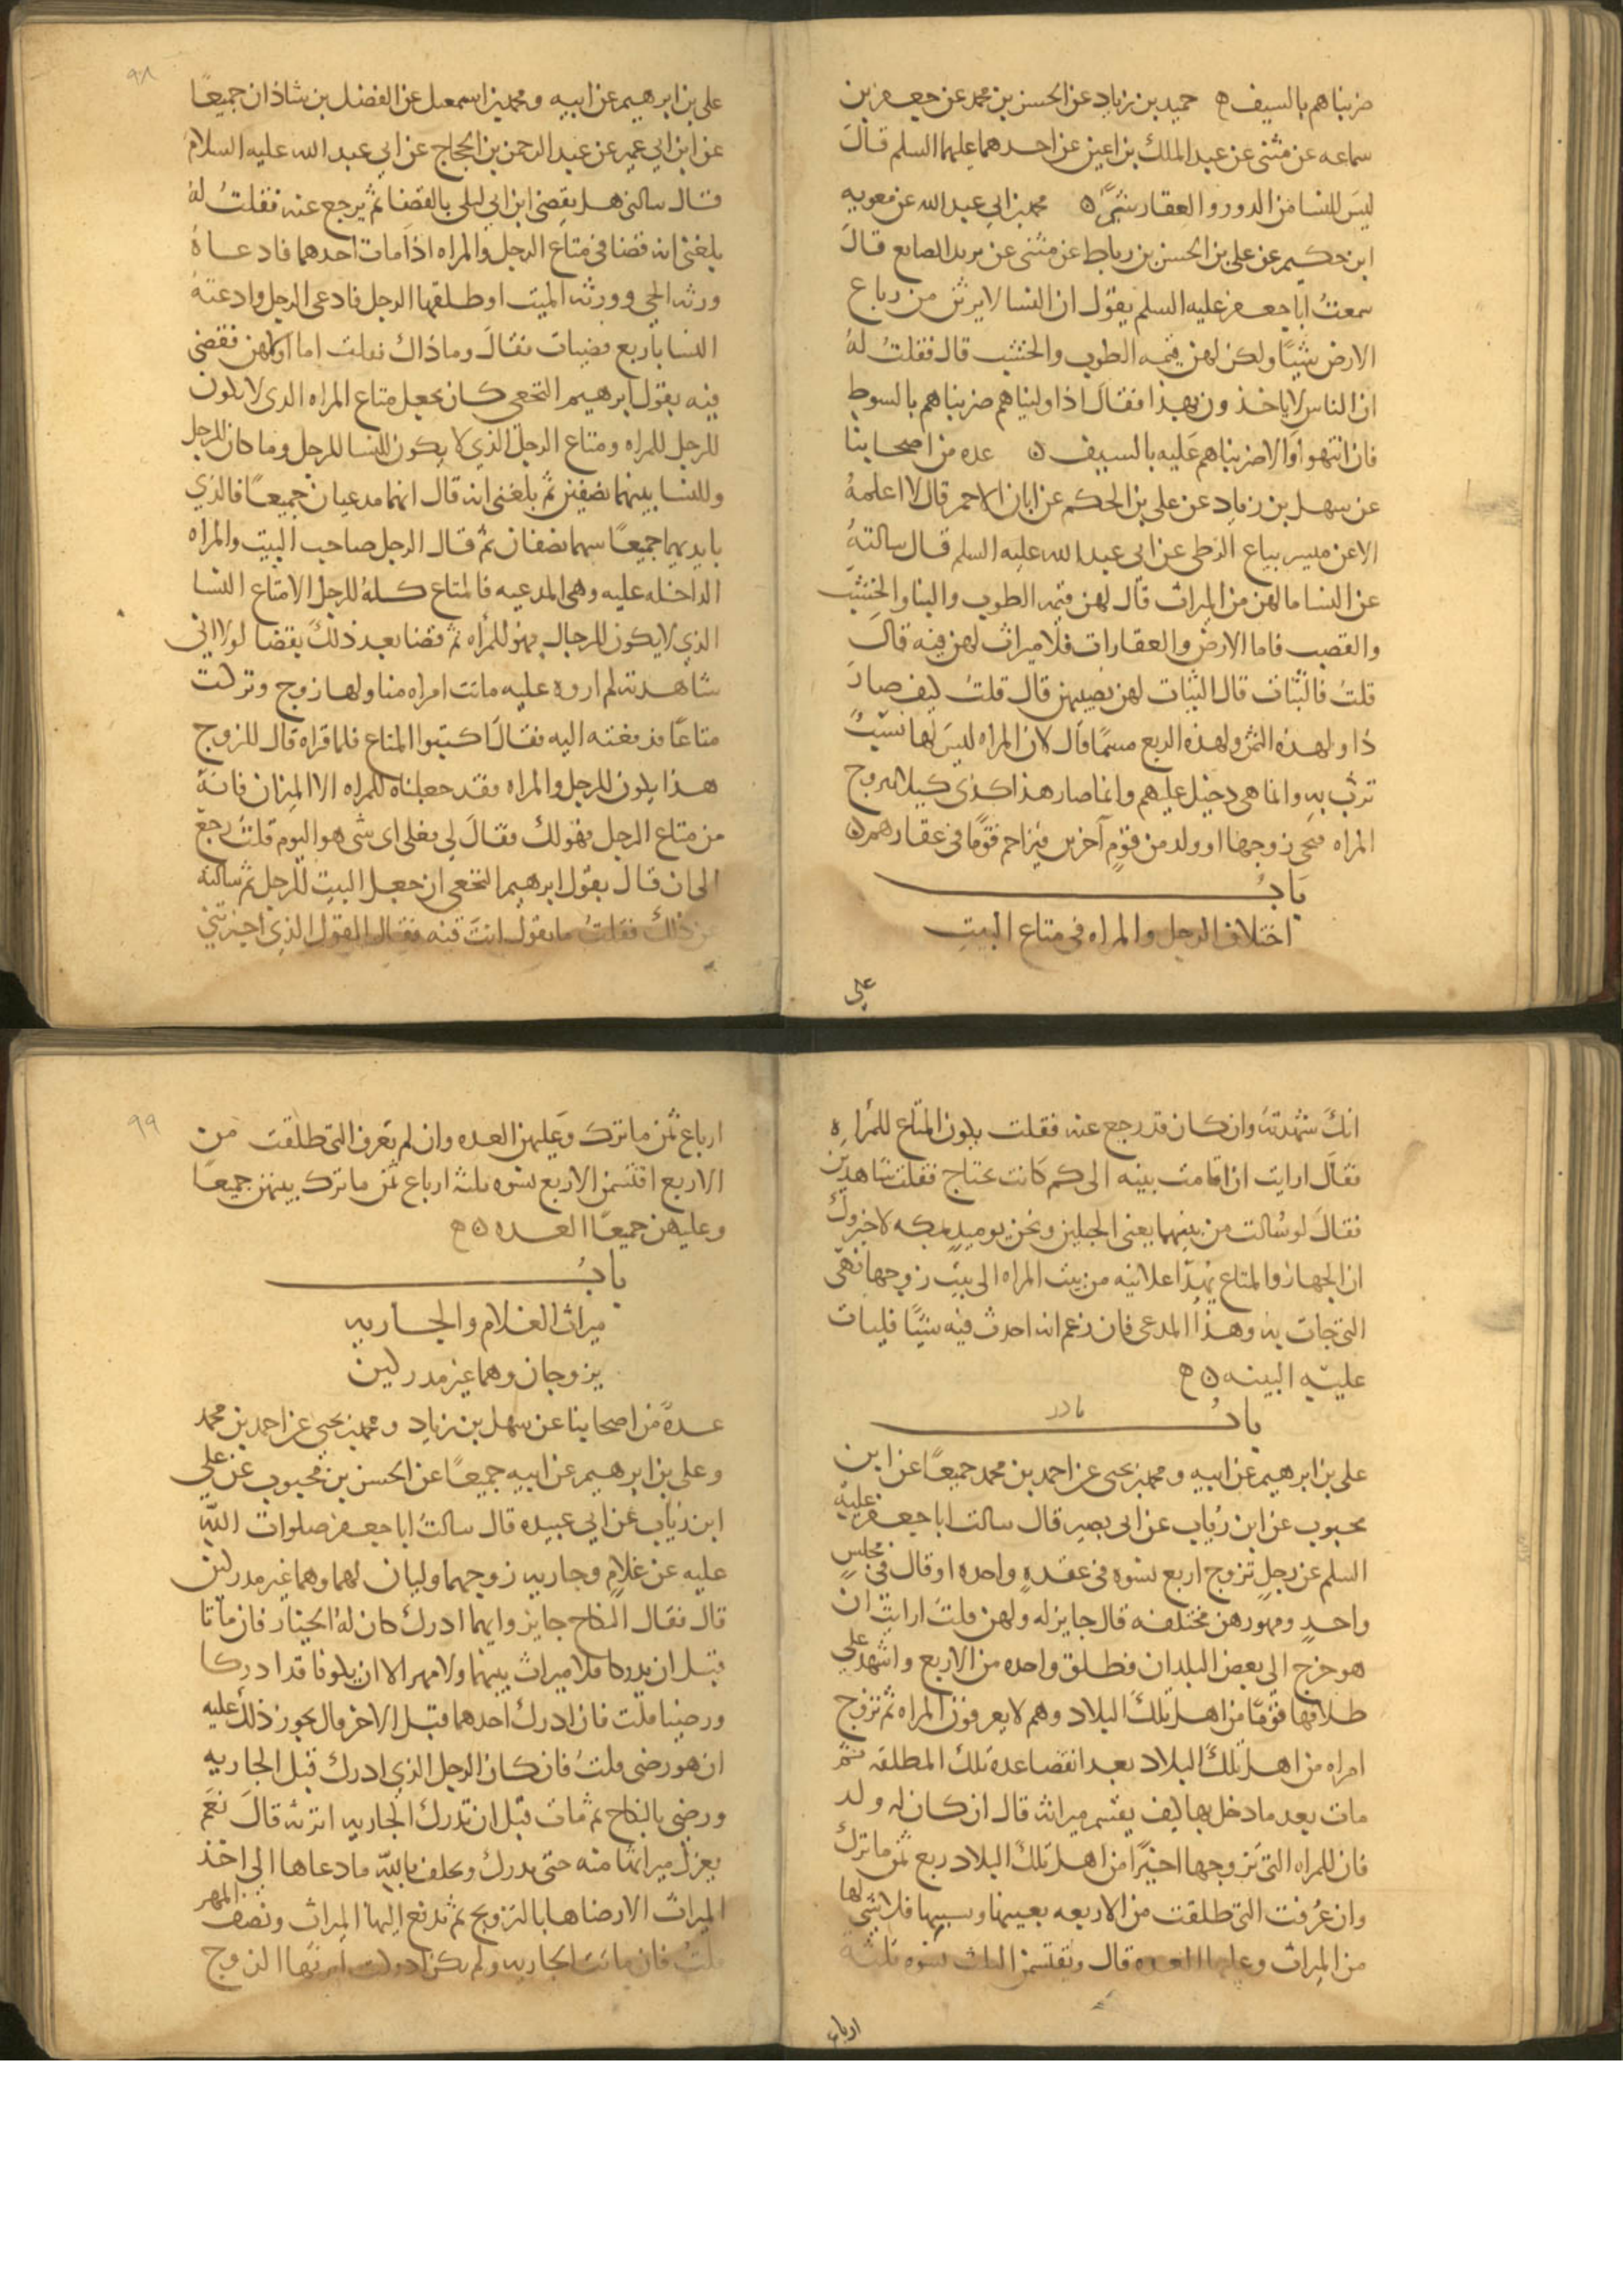 ضربناهم بالسيف ه حميد بن زياد عن الحسن بن محمد عن جعفر بن
سماعه عن مثنى عن عبد الملك بن اعين عن احدهما عليهما السلم قال
ليس للنسا من الدور والعقار شي ه محمد بن ابي عبد الله عن معويه
ابن حكيم عن علي بن الحسن بن رباط عن مثنى عن يزيد الصايع قال
سمعت ابا جعفر عليه السلم يقول ان النسا لا يرثن من رباع
الارض شيا ولكن لهن قيمه الطوب والخشب قال فقلت له
ان الناس لا ياخذون بهذا فقال اذا وليناهم ضربناهم بالسوط
فان انتهوا والا ضربناهم عليه بالسيف ه عده من اصحابنا
عن سهل بن زياد عن علي بن الحكم عن ابان الاحمر قال لا اعلمه
الا عن ميسر بياع الزطي عن ابي عبد الله عليه السلم قال سالته
عن النسا ما لهن من الميراث قال لهن قيمه الطوب والبنا والخشب
والقصب فاما الارض والعقارات فلا ميراث لهن فيه قال
قلت فالثياب قال الثياب لهن نصيبهن قال قلت كيف صار
ذا ولهذه الثمن ولهذه الربع مسما قال لان المراه ليس لها نسب
ترث به وانما هي دخيل عليهم وانما صار هذا كذى كيلا تتزوج
المراه فيجي زوجها او ولد من قوم آخرين فيزاحم قوما في عقارهم ه
باب
اختلاف الرجل والمراه في متاع البيت
علي
٩٨
علي بن ابرهيم عن ابيه ومحمد بن اسمعيل عن الفضل بن شاذان جميعا
عن ابن ابي عمير عن عبد الرحمن بن الحجاج عن ابي عبد الله عليه السلام
قال سالني هل يقضي ابن ابي ليلى بالقضا ثم يرجع عنه فقلت له
بلغني انه قضا في متاع الرجل والمراه اذا مات احدهما فادعاه
ورثه الحي وورثه الميت او طلقها الرجل فادعى الرجل وادعته
النسا باربع قضيات فقال وما ذاك فقلت اما اولهن فقضى
فيه بقول ابرهيم النخعي كان يجعل متاع المراه الذى لا يكون
للرجل للمراه ومتاع الرجل الذي لا يكون للنسا للرجل وما كان للرجل
وللنسا بينهما نصفين ثم بلغني انه قال انهما مدعيان جميعا فالذي
بايديهما جميعا بينهما نصفان ثم قال الرجل صاحب البيت والمراه
الداخله عليه وهي المدعيه فالمتاع كله للرجل الا متاع النسا
الذي لا يكون للرجال فهو للمراه ثم قضا بعد ذلك بقضا لولا اني
شاهدته لم اروه عليه ماتت امراه منا ولها زوج وتركت
متاعا فرفعته اليه فقال اكتبوا المتاع فلما قراه قال للزوج
هذا يكون للرجل والمراه فقد جعلناه للمراه الا الميزان فانه
من متاع الرجل فهو لك فقال لي فعلى اى شي هو اليوم قلت رجع
الى ان قال بقول ابرهيم النخعي ان جعل البيت للرجل ثم سالته
عن ذلك فقلت ما تقول انت فيه فقال القول الذي اخبرتني
انك شهدته وان كان قد رجع عنه فقلت يكون المتاع للمراه
فقال ارايت ان اقامت بينه الى كم كانت تحتاج فقلت شاهدين
فقال لو سالت من بينهما يعني الجبلين ونحن يوميذ بمكه لاخبروك
ان الجهاز والمتاع يهدا علانيه من بيت المراه الى بيت زوجها فهي
التي جات به وهذا المدعي فان زعم انه احدث فيه شيا فليات
عليه البينه ه
باب نادر
علي بن ابرهيم عن ابيه ومحمد بن يحيى عن احمد بن محمد جميعا عن ابن
محبوب عن ابن رياب عن ابي بصير قال سالت ابا جعفر عليه
السلم عن رجل تزوج اربع نسوه في عقده واحده او قال في مجلس
واحد ومهورهن مختلفه قال جايز له ولهن قلت ارايت ان
هو خرج الى بعض البلدان فطلق واحده من الاربع واشهد على
طلاقها قوما من اهل تلك البلاد وهم لا يعرفون المراه ثم تزوج
امراه من اهل تلك البلاد بعد انقضا عده تلك المطلقه ثم
مات بعد ما دخل بها كيف يقسم ميراثه قال ان كان له ولد
فان للمراه التي تزوجها اخيرا من اهل تلك البلاد ربع ثمن ما ترك
وان عرفت التي طلقت من الاربعه بعينها ونسبها فلا شي لها
من الميراث وعليها العده قال ويقتسمن الثلث نسوه ثلثة
ارباع
٩٩
ارباع ثمن ما ترك وعليهن العده وان لم تعرف التي طلقت من
الاربع اقتسمن الاربع نسوه ثلثة ارباع ثمن ما ترك بينهن جميعا
وعليهن جميعا العده ه
باب
ميراث الغلام والجاريه
يزوجان وهما غير مدركين
عدة من اصحابنا عن سهل بن زياد ومحمد بن يحيى عن احمد بن محمد
وعلي بن ابرهيم عن ابيه جميعا عن الحسن بن محبوب عن علي
ابن رياب عن ابي عبيده قال سالت ابا جعفر صلوات الله
عليه عن غلام وجاريه زوجهما وليان لهما وهما غير مدركين
قال فقال النكاح جايز وايهما ادرك كان له الخيار فان ماتا
قبل ان يدركا فلا ميراث بينهما ولا مهر الا ان يكونا قد ادركا
ورضيا قلت فان ادرك احدهما قبل الاخر قال يجوز ذلك عليه
ان هو رضى قلت فان كان الرجل الذي ادرك قبل الجاريه
ورضي بالنكاح ثم مات قبل ان تدرك الجاريه اترثه قال نعم
يعزل ميراثها منه حتى تدرك وتحلف بالله ما دعاها الى اخذ
الميراث الا رضاها بالتزويج ثم تدفع اليها الميراث ونصف المهر
قلت فان ماتت الجاريه ولم تكن ادركت ايرثها الزوج